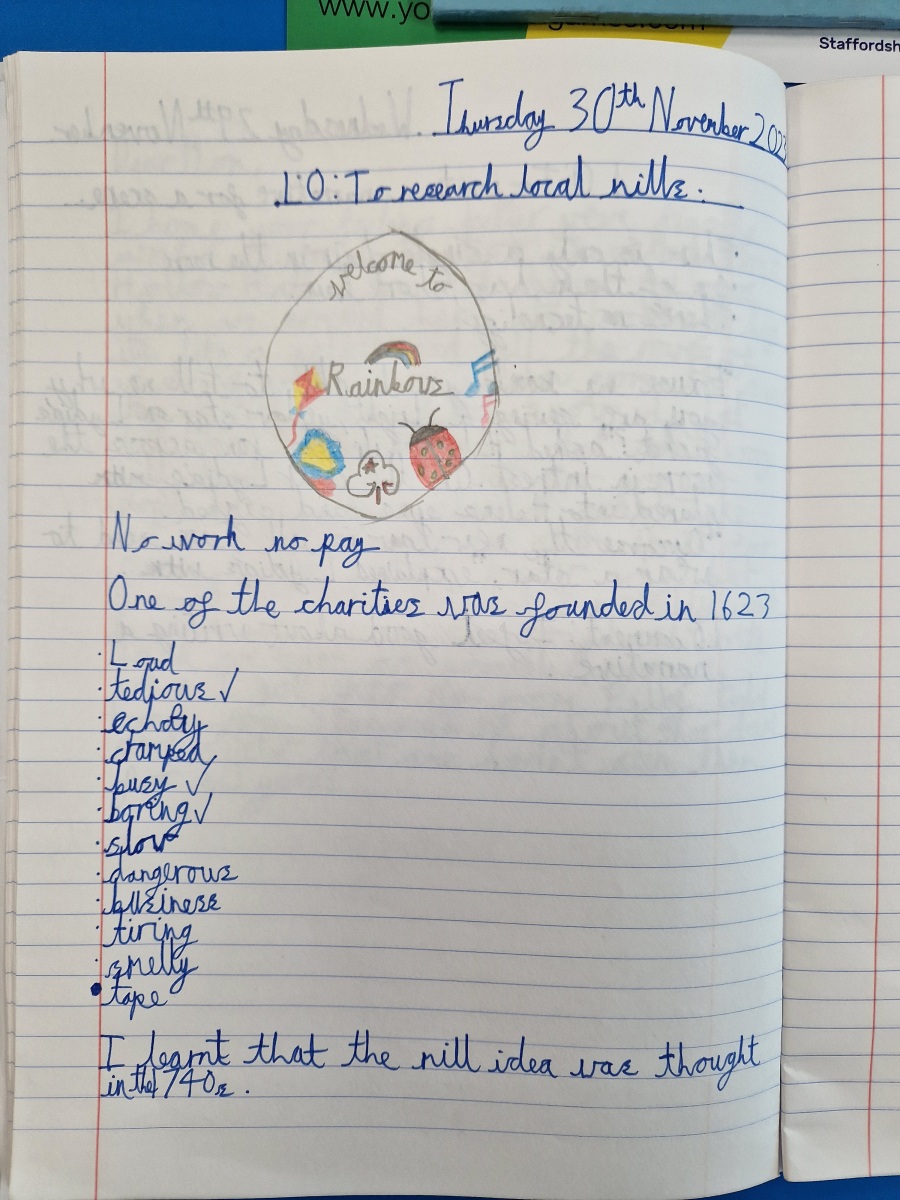 www.yo
Staffordsh
Thursday 30th November 202
L.O: To research local mills.
welcome to
Rainbows
No work no pay
One of the charities was founded in 1623
· Loud
· tedious ✓
· echoty
· cramped
· busy ✓
· boring ✓
· slow
· dangerous
· business
· tiring
· smelly
· tape
I learnt that the mill idea was thought
in the 1740s.